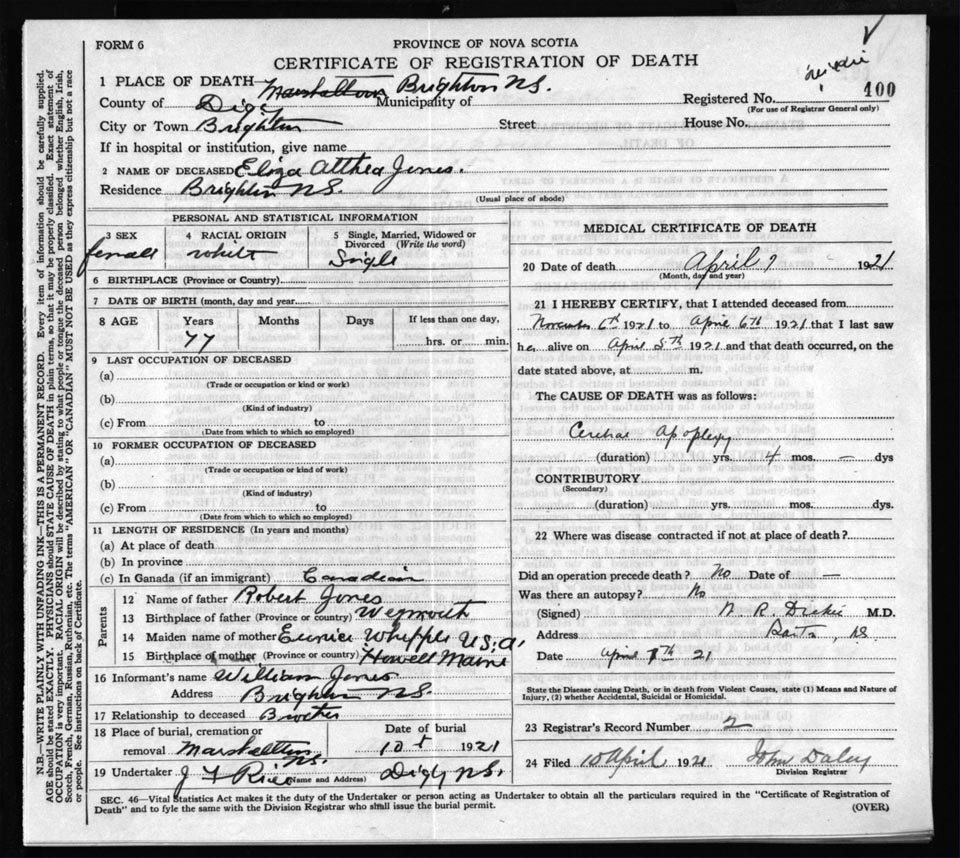 FORM 6
PROVINCE OF NOVA SCOTIA
CERTIFICATE OF REGISTRATION OF DEATH
1 PLACE OF DEATH Marshalltown Brighton N.S.
County of Digby Municipality of Registered No. 100
(For use of Registrar General only)
City or Town Brighton Street House No.
If in hospital or institution, give name
2 NAME OF DECEASED Eliza Althea Jones.
Residence Brighton N.S.
(Usual place of abode)
PERSONAL AND STATISTICAL INFORMATION
3 SEX 4 RACIAL ORIGIN 5 Single, Married, Widowed or Divorced (Write the word)
female white Single
6 BIRTHPLACE (Province or Country)
7 DATE OF BIRTH (month, day and year)
8 AGE Years Months Days If less than one day,
77 hrs. or min.
9 LAST OCCUPATION OF DECEASED
(a)
(Trade or occupation or kind or work)
(b)
(Kind of industry)
(c) From to
(Date from which to which so employed)
10 FORMER OCCUPATION OF DECEASED
(a)
(Trade or occupation or kind of work)
(b)
(Kind of industry)
(c) From to
(Date from which to which so employed)
11 LENGTH OF RESIDENCE (In years and months)
(a) At place of death
(b) In province
(c) In Canada (if an immigrant) Canadian
Parents
12 Name of father Robert Jones
13 Birthplace of father (Province or country) Weymouth
14 Maiden name of mother Eunice Whipple U.S.A.
15 Birthplace of mother (Province or country) Howell Maine
16 Informant's name William Jones
Address Brighton N.S.
17 Relationship to deceased Brother
18 Place of burial, cremation or Date of burial
removal Marshalltown N.S. 10 1921
19 Undertaker J F Rice Name and Address) Digby N.S.
MEDICAL CERTIFICATE OF DEATH
20 Date of death April 7 1921
(Month, day and year)
21 I HEREBY CERTIFY, that I attended deceased from
November 6th 1921 to April 6th 1921 that I last saw
her alive on April 5th 1921 and that death occurred, on the
date stated above, at m.
The CAUSE OF DEATH was as follows:
Cerebral Apoplexy
(duration) yrs. 4 mos. — dys
CONTRIBUTORY
(Secondary)
(duration) yrs. mos. dys.
22 Where was disease contracted if not at place of death?
Did an operation precede death? No Date of —
Was there an autopsy? No
(Signed) Dickie M.D.
Address N.S.
Date April 21
State the Disease causing Death, or in death from Violent Causes, state (1) Means and Nature of
Injury, (2) whether Accidental, Suicidal or Homicidal.
23 Registrar's Record Number 2
24 Filed 10 April 1921 John Daley
Division Registrar
SEC. 46—Vital Statistics Act makes it the duty of the Undertaker or person acting as Undertaker to obtain all the particulars required in the "Certificate of Registration of
Death" and to fyle the same with the Division Registrar who shall issue the burial permit. (OVER)
N.B.—WRITE PLAINLY WITH UNFADING INK—THIS IS A PERMANENT RECORD. Every item of information should be carefully supplied.
AGE should be stated EXACTLY. PHYSICIANS should STATE CAUSE OF DEATH in plain terms, so that it may be properly classified. Exact statement of
OCCUPATION is very important. RACIAL ORIGIN will be described by stating to what people or tongue the deceased person belonged whether English, Irish,
Scotch, French, German, Russian, Ruthenian, etc. The terms "AMERICAN" OR "CANADIAN" MUST NOT BE USED as they express citizenship but not a race
or people. See instructions on back of Certificate.